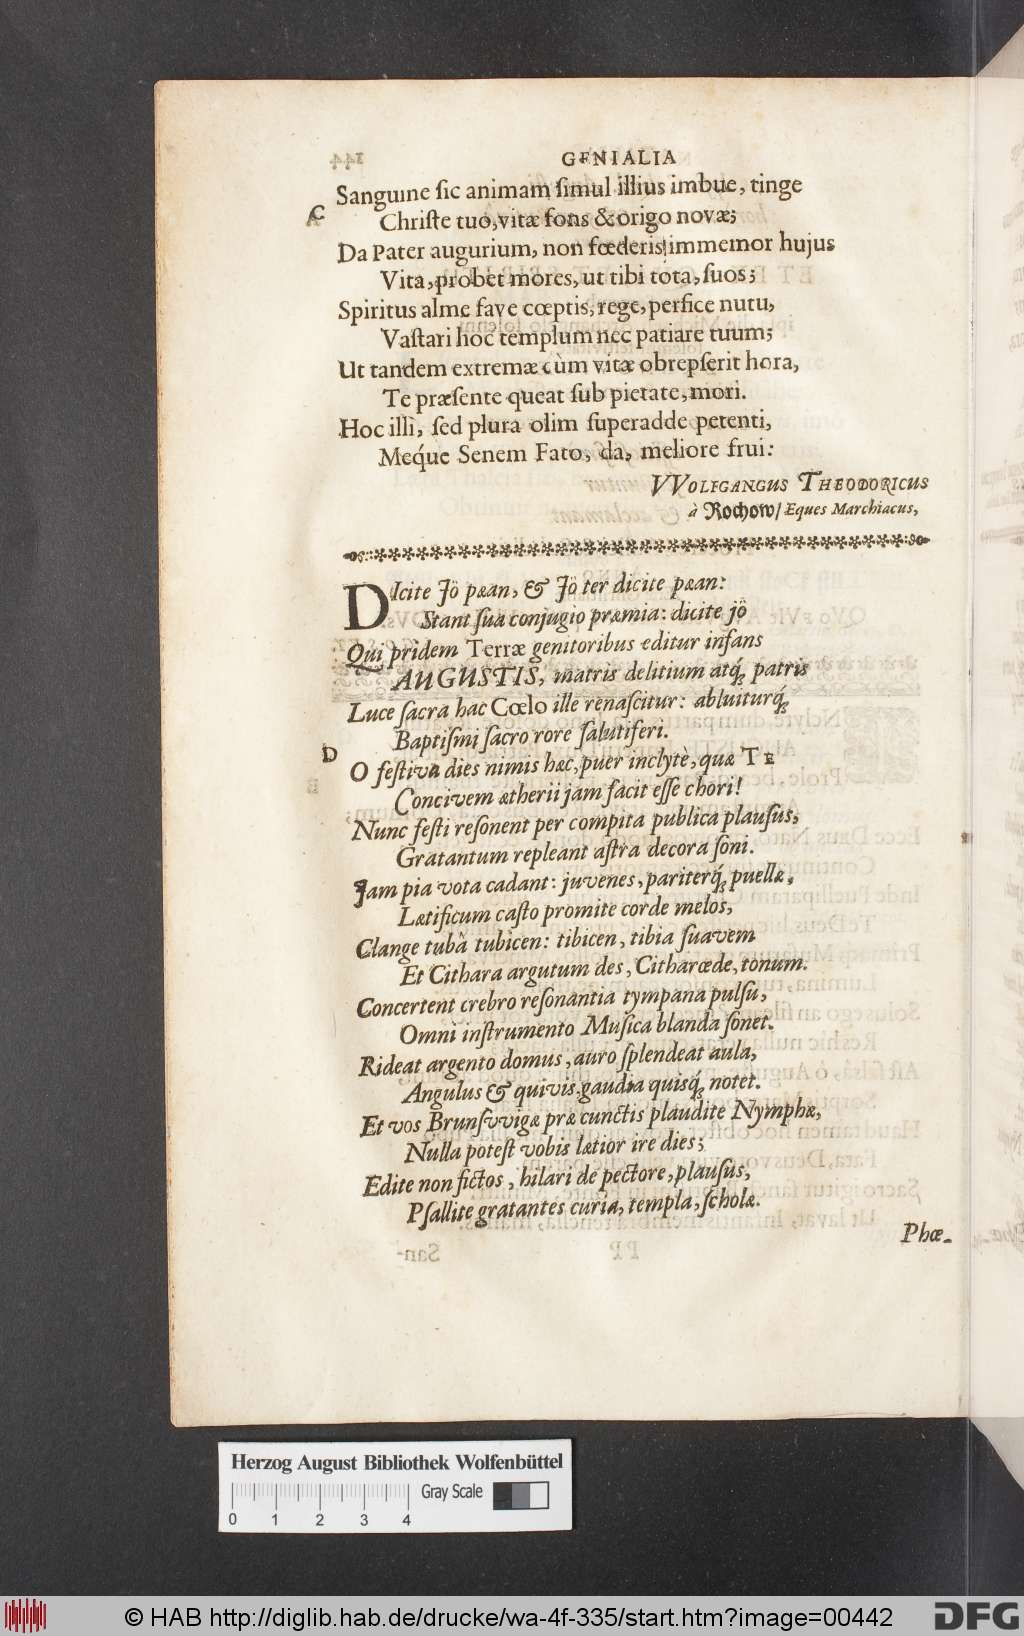 GENIALIA
Sanguine ſic animam ſimul illius imbue, tinge
C
Chriſte tuo, vitæ fons & origo novæ;
Da Pater augurium, non fœderis immemor hujus
Vita, probet mores, ut tibi tota, ſuos;
Spiritus alme fave cœptis, rege, perfice nutu,
Vaſtari hoc templum nec patiare tuum;
Ut tandem extremæ cùm vitæ obrepſerit hora,
Te præſente queat ſub pietate, mori.
Hoc illi, ſed plura olim ſuperadde petenti,
Meq́ue Senem Fato, da, meliore frui:
VVOLFGANGUS THEODORICUS
à Rochow/ Eques Marchiacus,
DIcite Jö pæan, & Jö ter dicite pæan:
Stant ſua conjugio præmia: dicite jö
Qui pridem Terræ genitoribus editur infans
AUGUSTIS, matris delitium atq́; patris
Luce ſacra hac Cœlo ille renaſcitur: abluiturq́;
Baptiſmi ſacro rore ſalutiferi.
D
O feſtiva dies nimis hæc, puer inclytè, quæ TE
Concivem ætherii jam facit eſſe chori!
Nunc feſti reſonent per compita publica plauſus,
Gratantum repleant aſtra decora ſoni.
Jam pia vota cadant: juvenes, pariterq́; puellæ,
Lætificum caſto promite corde melos,
Clange tubâ tubicen: tibicen, tibia ſuavem
Et Cithara argutum des, Citharœde, tonum.
Concertent crebro reſonantia tympana pulſu,
Omni inſtrumento Muſica blanda ſonet.
Rideat argento domus, auro ſplendeat aula,
Angulus & quivis gaudia quisq́; notet.
Et vos Brunſvvigæ præ cunctis plaudite Nymphæ,
Nulla poteſt vobis lætior ire dies;
Edite non fictos, hilari de pectore, plauſus,
Pſallite gratantes curia, templa, ſcholæ.
Phœ-
Herzog August Bibliothek Wolfenbüttel
Gray Scale
0 1 2 3 4
© HAB http://diglib.hab.de/drucke/wa-4f-335/start.htm?image=00442
DFG